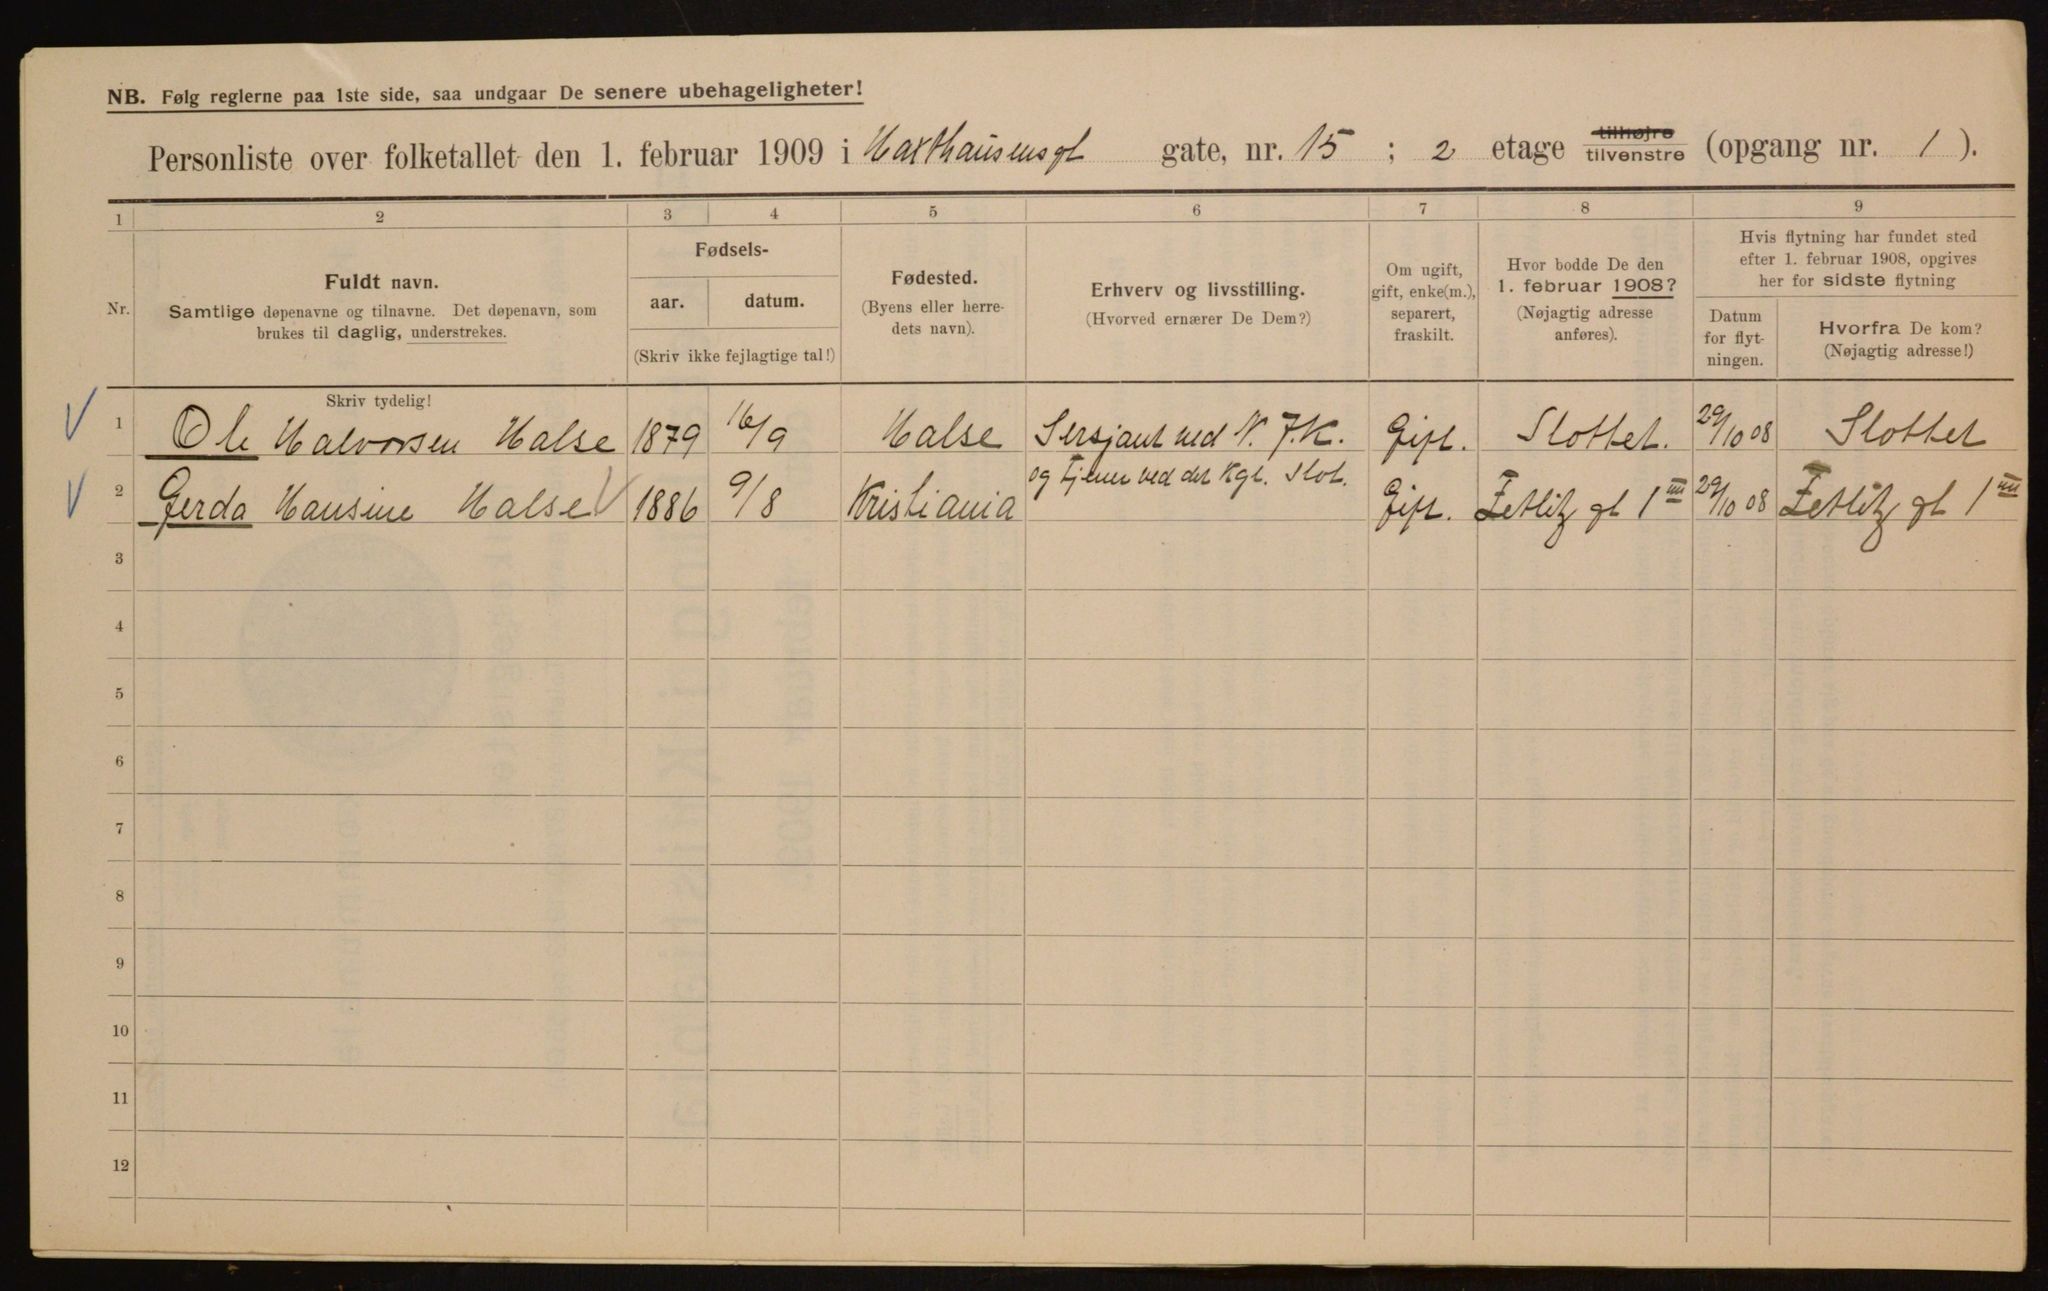 NB. Følg reglerne paa 1ste side, saa undgaar De senere ubehageligheter!
Personliste over folketallet den 1. februar 1909 i Haxthausensgt gate, nr. 15 ; 2 etage tilhøjre tilvenstre (opgang nr. 1 ).
1 2 3 4 5 6 7 8 9
Nr.
Fuldt navn.
Samtlige døpenavne og tilnavne. Det døpenavn, som
brukes til daglig, understrekes.
Skriv tydelig!
Fødsels-
aar. datum.
(Skriv ikke fejlagtige tal!)
Fødested.
(Byens eller herre-
dets navn).
Erhverv og livsstilling.
(Hvorved ernærer De Dem?)
Om ugift,
gift, enke(m.),
separert,
fraskilt.
Hvor bodde De den
1. februar 1908?
(Nøjagtig adresse
anføres).
Hvis flytning har fundet sted
efter 1. februar 1908, opgives
her for sidste flytning
Datum
for flyt-
ningen.
Hvorfra De kom?
(Nøjagtig adresse!)
1 Ole Halvorsen Halse 1879 16/9 Halse Sersjant ved N. J.K. Gift. Slottet. 29/10 08 Slottet
og tjener ved det Kgl. Slot.
2 Gerda Hansine Halse 1886 9/8 Kristiania Gift. Zetlitz gt 1 29/10 08 Zetlitz gt 1
3
4
5
6
7
8
9
10
11
12